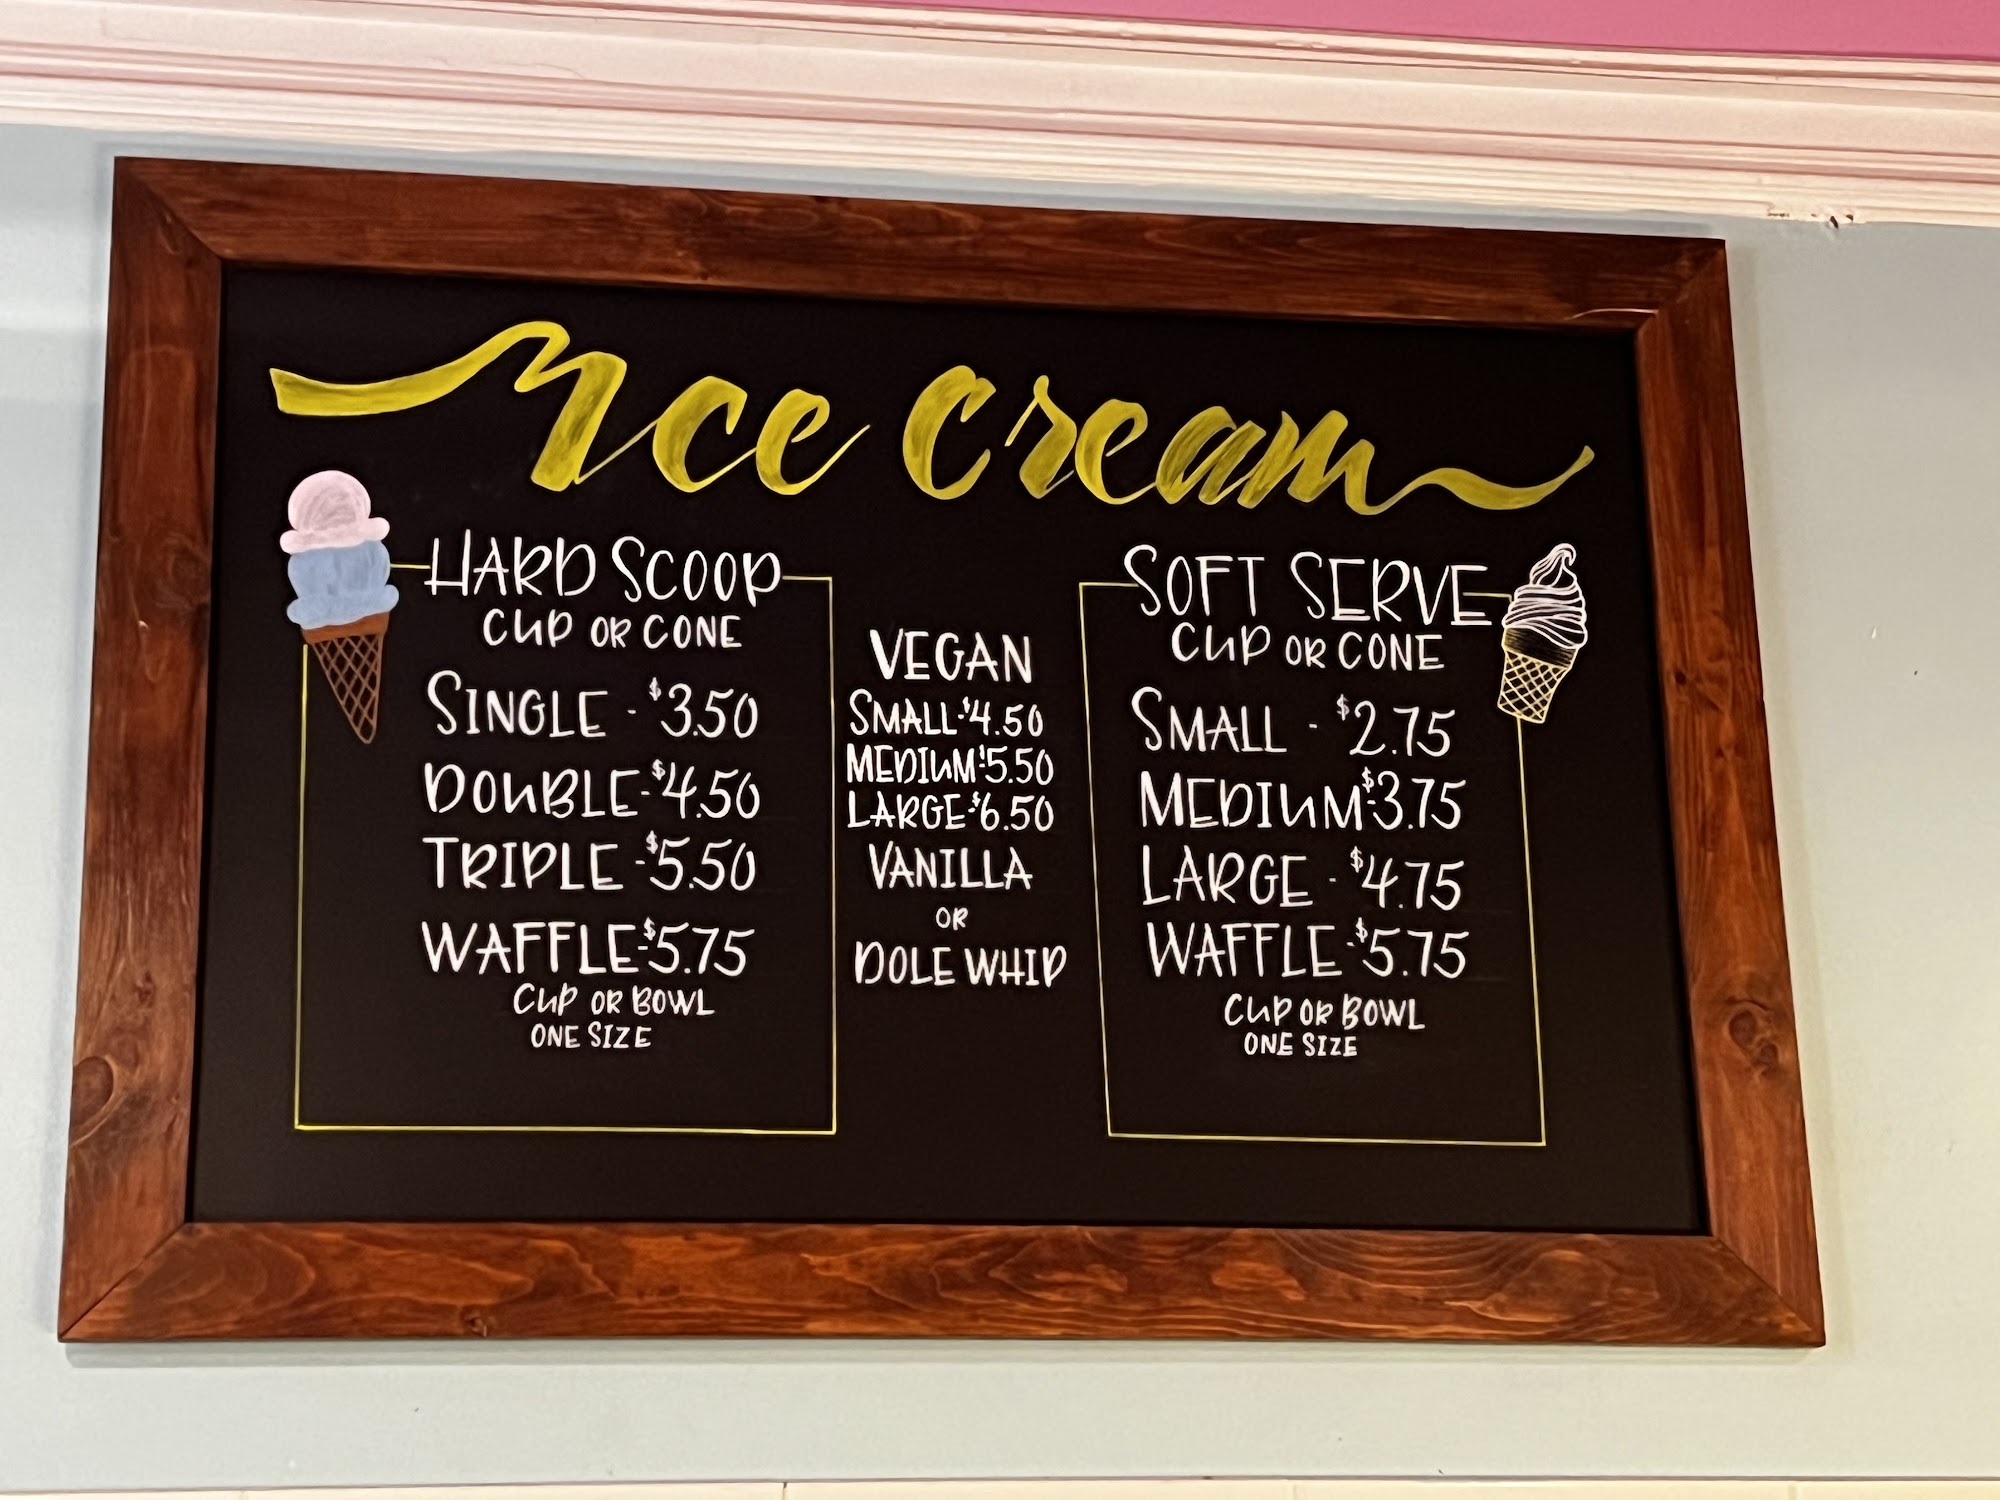 Ice Cream
HARD SCOOP
CUP OR CONE
SINGLE - $3.50
DOUBLE - $4.50
TRIPLE - $5.50
WAFFLE - $5.75
CUP OR BOWL
ONE SIZE
VEGAN
SMALL - $4.50
MEDIUM - $5.50
LARGE - $6.50
VANILLA
OR
DOLE WHIP
SOFT SERVE
CUP OR CONE
SMALL - $2.75
MEDIUM - $3.75
LARGE - $4.75
WAFFLE - $5.75
CUP OR BOWL
ONE SIZE